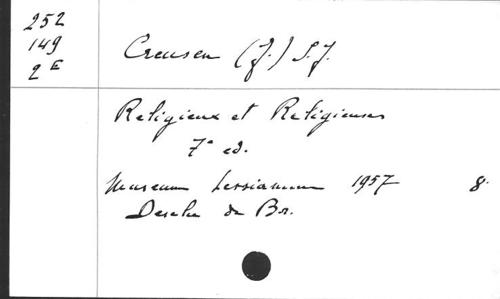 252
149
2 E
Creusen (J.) S.J.
Religieux et Religieuses
7e ed.
Museum Lessianum 1957 8.
Desclée de Br.